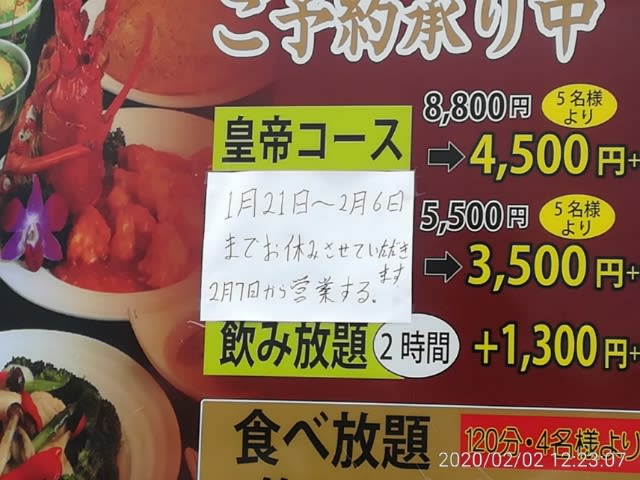 ご予約承り中
8,800円
5名様より
皇帝コース
➡4,500円+
1月21日〜2月6日
までお休みさせていただきます
2月7日から営業する。
5,500円
5名様より
➡3,500円+
飲み放題
2時間
+1,300円+
食べ放題
120分・4名様より
2020/02/02 12:23:07